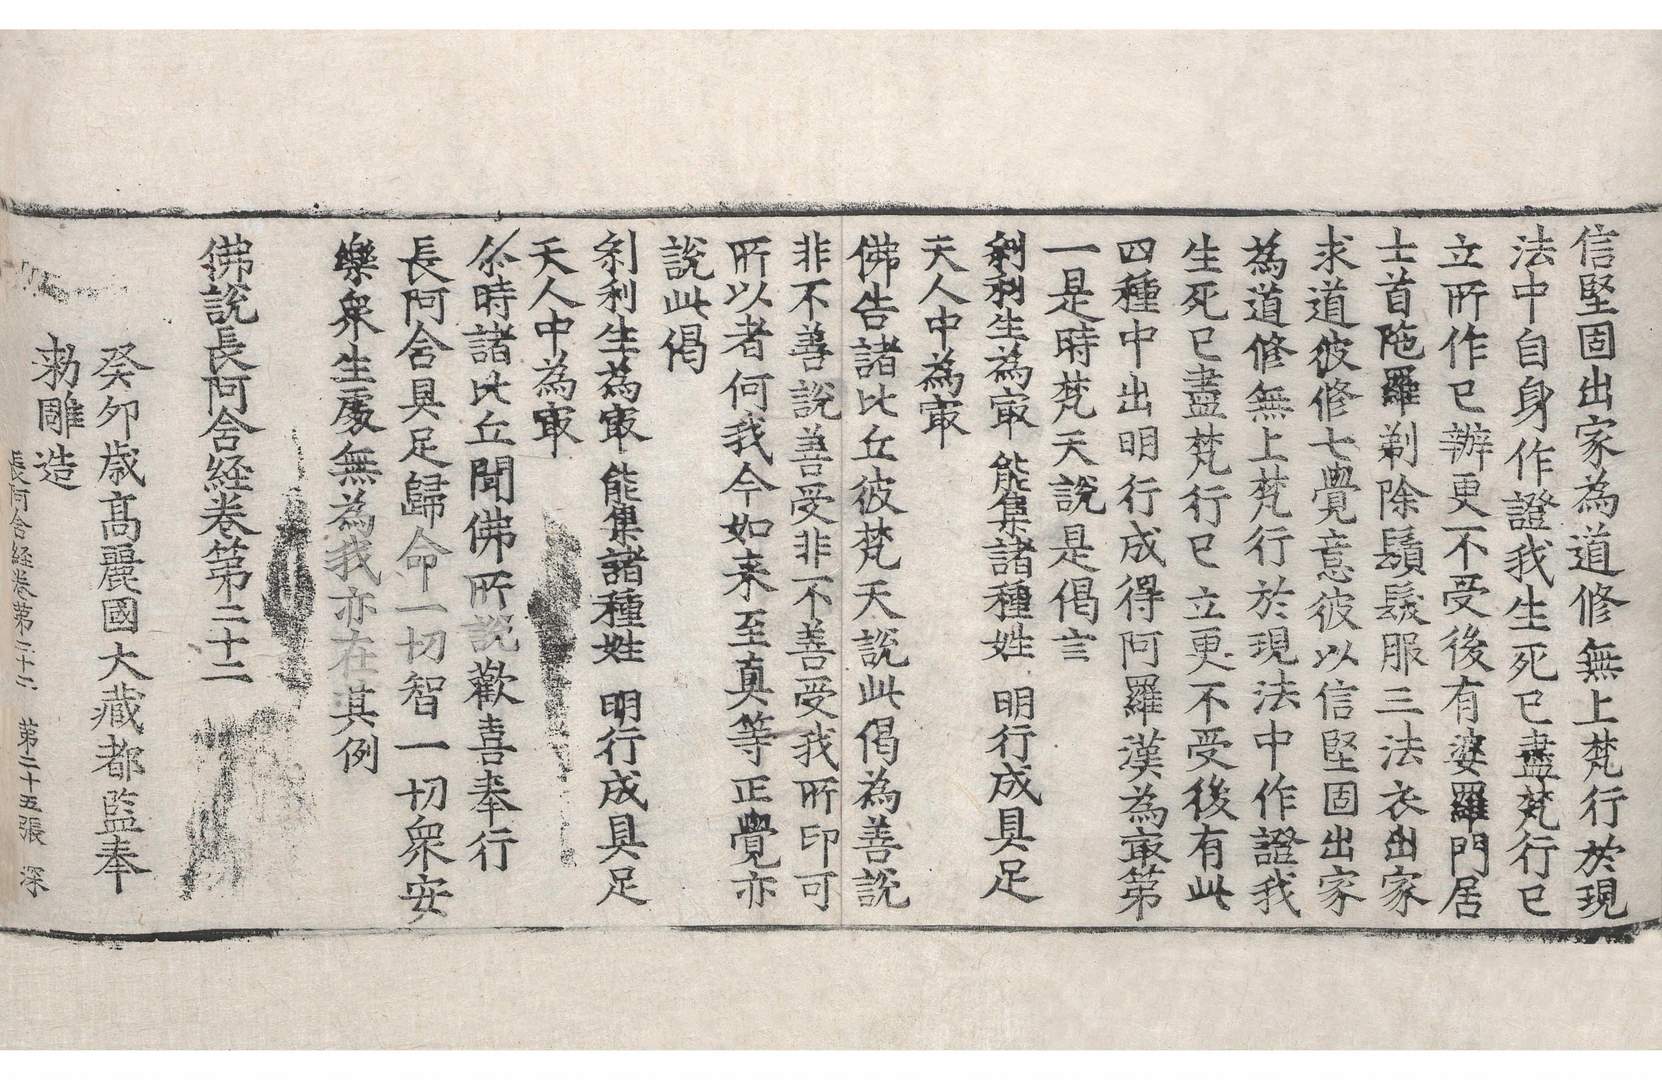 信堅固出家為道修無上梵行於現
法中自身作證我生死已盡梵行已
立所作已辦更不受後有婆羅門居
士首陁羅剃除鬚髮服三法衣出家
求道彼修七覺意彼以信堅固出家
為道修無上梵行於現法中作證我
生死已盡梵行已立更不受後有此
四種中出明行成得阿羅漢為㝡第
一是時梵天說是偈言
刹利生為㝡 能集諸種姓 明行成具足
天人中為㝡
佛告諸比丘彼梵天說此偈為善說
非不善說善受非不善受我所印可
所以者何我今如来至真等正覺亦
說此偈
刹利生為㝡 能集諸種姓 明行成具足
天人中為㝡
尒時諸比丘聞佛所説歡喜奉行
長阿含具足歸命一切智一切衆安
樂衆生處無為我亦在其例
佛説長阿含経卷第二十二
癸卯歳髙麗國大藏都監奉
勑雕造
長阿含経卷第二十二 第二十五張 深